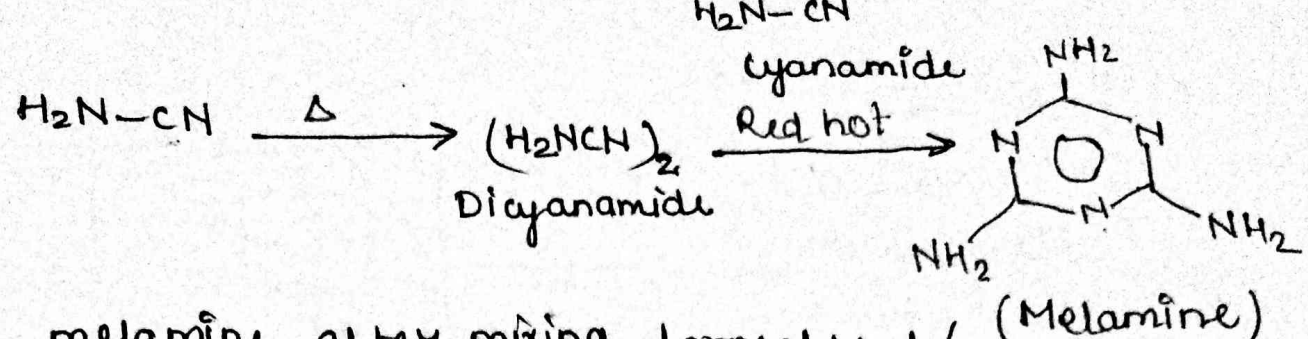 H₂N–CN
Cyanamide
H₂N–CN Δ (H₂NCN)₂ Red hot
Dicyanamide
NH₂
N N
N
NH₂ NH₂
(Melamine)
melamine after mixing